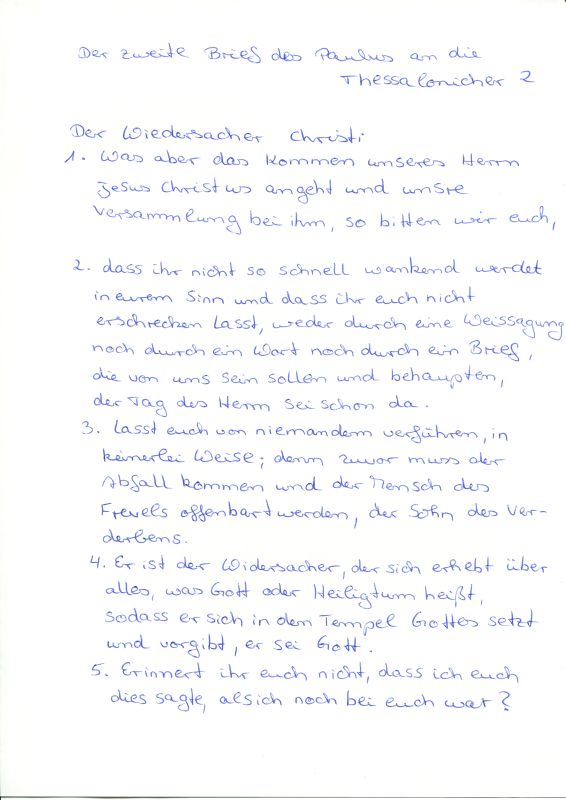 Der zweite Brief des Paulus an die
Thessalonicher 2
Der Wiedersacher Christi
1. Was aber das Kommen unseres Herrn
Jesus Christus angeht und unsre
Versammlung bei ihm, so bitten wir euch,
2. dass ihr nicht so schnell wankend werdet
in eurem Sinn und dass ihr euch nicht
erschrecken lasst, weder durch eine Weissagung
noch durch ein Wort noch durch ein Brief,
die von uns sein sollen und behaupten,
der Tag des Herrn sei schon da.
3. Lasst euch von niemandem verführen, in
keinerlei Weise; denn zuvor muss der
Abfall kommen und der Mensch des
Frevels offenbart werden, der Sohn des Ver-
derbens.
4. Er ist der Widersacher, der sich erhebt über
alles, was Gott oder Heiligtum heißt,
sodass er sich in den Tempel Gottes setzt
und vorgibt, er sei Gott.
5. Erinnert ihr euch nicht, dass ich euch
dies sagte, als ich noch bei euch war?